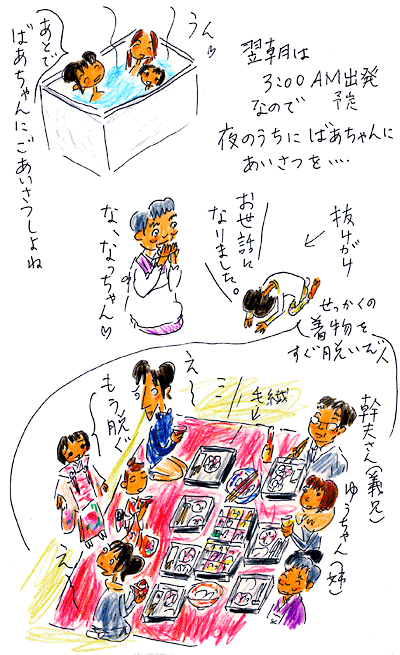 うん♡
あとで
ばあちゃんにごあいさつしよね
翌朝は
3:00 AM出発
予定
なので
夜のうちに ばあちゃんに
あいさつを‥‥
抜けがけ
お世話に
なりました。
な、なっちゃん♡
せっかくの
着物を
すぐ脱いだ人
え〜
もう脱ぐ
毛織
幹夫さん(義兄)
ゆうちゃん(姉)
え〜